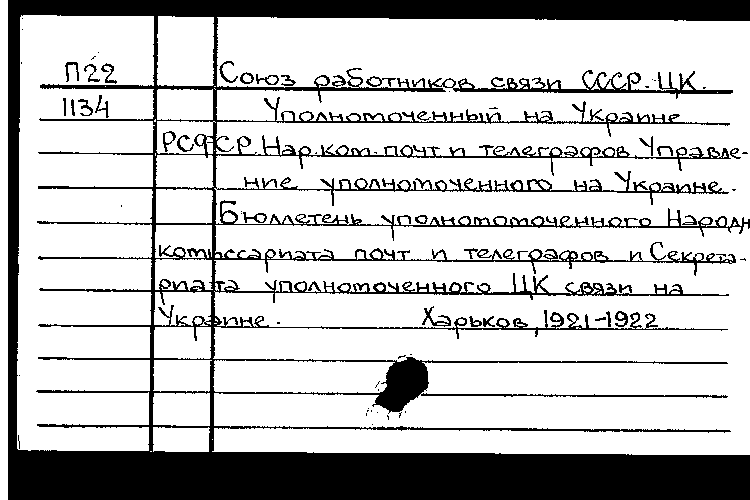 П22 Союз работников связи СССР. ЦК.
1134 Уполномоченный на Украине
РСФСР. Нар. ком. почт и телеграфов. Управле-
ние уполномоченного на Украине.
Бюллетень уполномоточенного Народн
комиссариата почт и телеграфов и Секрета-
риата уполномоченного ЦК связи на
Украине. Харьков, 1921-1922